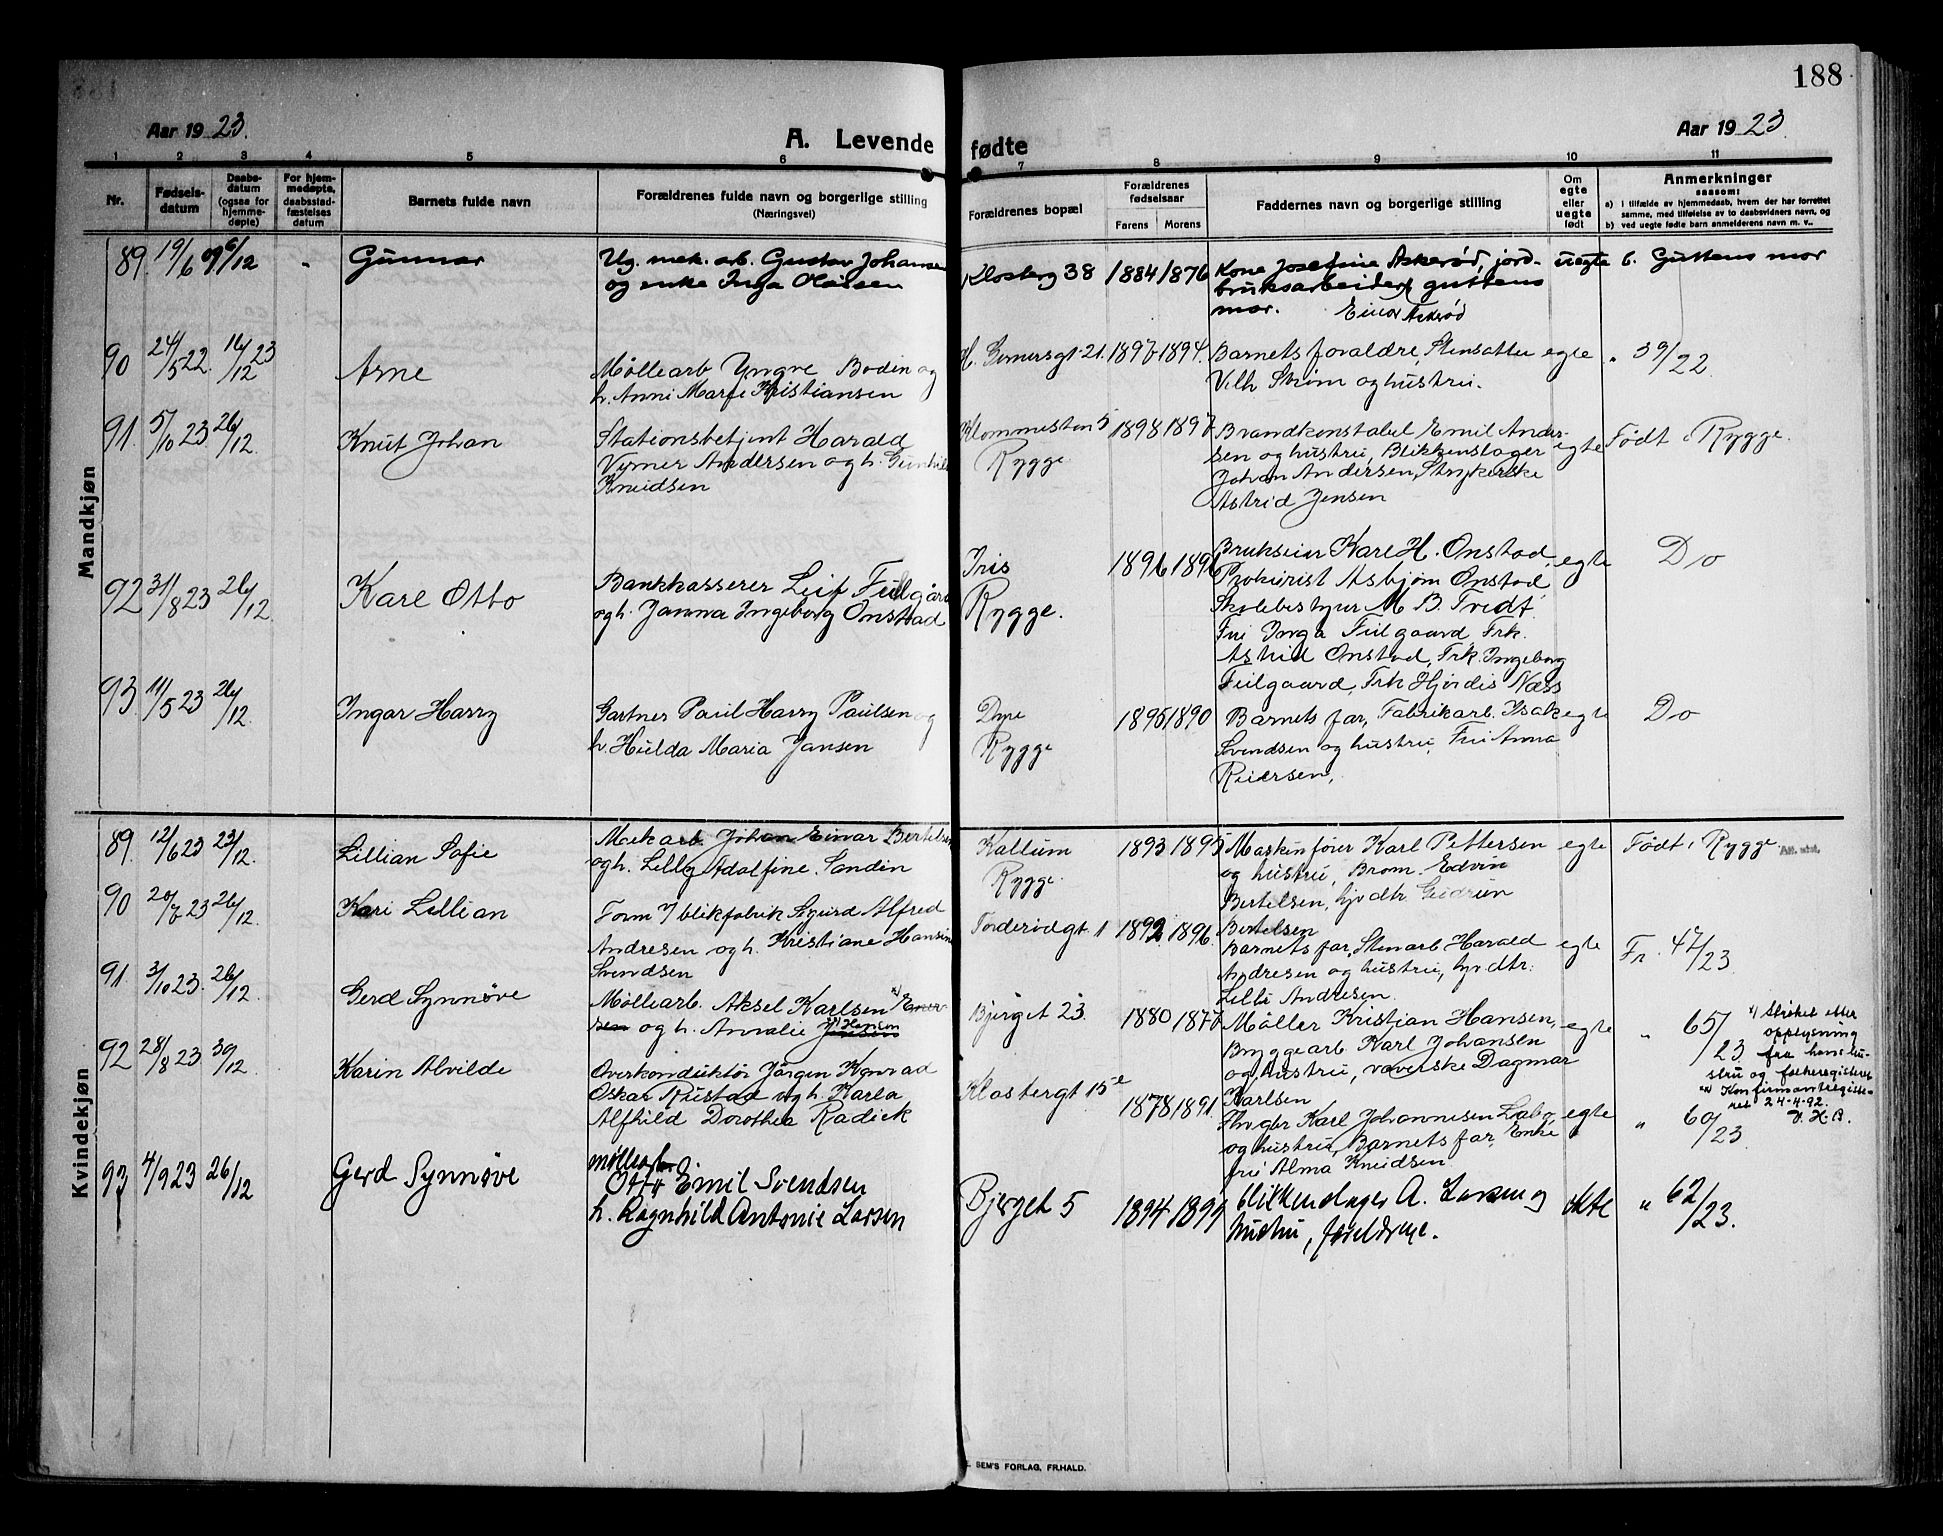 188
Aar 1923.
A. Levende fødte
Aar 1923
1 2 3 4 5 6 7 8 9 10 11
Nr.
Fødsels-
datum
Daabs-
datum
(ogsaa for
hjemme-
døpte)
For hjem-
medøpte,
daabsstad-
fæstelses
datum
Barnets fulde navn
Forældrenes fulde navn og borgerlige stilling
(Næringsvei)
Forældrenes bopæl
Forældrenes
fødselsaar
Farens Morens
Faddernes navn og borgerlige stilling
Om
egte
eller
uegte
født
Anmerkninger
saasom:
a) i tilfælde av hjemmedaab, hvem der har forrettet
samme, med tilføielse av to daabsvidners navn, og
b) ved uegte fødte barn anmelderens navn m. v..
Mandkjøn
89. 19/6 09 6/12 - Gunnar
Ug. mek. arb. Gustav Johansen
og enke Inga Olaisen
Klosterg 38 1884 1876
Kone Josefine Askerød, jord-
bruksarbeider guttens
mor. Einar Askerød
uegte b. Guttens mor
90 24/5 22. 16/12 23 Arne
Møllearb Yngve Bodin og
h. Anni Marie Kristiansen
H. Gernersgt. 21. 1897 1894.
Barnets foraldre, Stensatter
Vilh Strøm og hustru.
egte " 39/22
91. 5/10 23 26/12. Knut Johan
Stationsbetjent Harald
Verner Andersen og h. Gunhild
Knudsen
Klommesten 5
Rygge. 1898 1897
Brandkonstabel Emil Ander-
sen og hustru, Blikkenslager
Johan Andersen, Strykerske
Astrid Jensen
egte Født i Rygge.
92 31/8 23 26/12. Karl Otto
Bankkasserer Leif Fulgård
og h. Janna Ingeborg Onstad
Iris
Rygge. 1896 1896
Brukseier Karl H. Onstad,
Prokurist Asbjørn Onstad
Skolebestyrer M. B. Tvedt.
Fru Inga Fulgaard, Frk.
Astrid Onstad, Frk. Ingeborg
Fulgaard, Frk Hjørdis Næss
egte Do
93. 11/5 23 26/12. Ingar Harry
Gartner Paul Harry Paulsen og
h. Hulda Maria Jansen
Dyre
Rygge 1895 1890
Barnets far, Fabrikarb. Isak
Svendsen og hustru, Fru Anna
Reiersen,
egte Do
Kvindekjøn
89. 12/6 23 23/12. Lillian Sofie
Mekarb. Johan Einar Bertelsen
og h. Lilly Adolfine Sandin
Kallum
Rygge. 1893 1895
Maskinfører Karl Pettersen
og hustru, Brom. Edvin
Bertelsen, hjvdtr Gudrun
Bertelsen
egte Født i Rygge
90 20/7 23 26/12. Kari Lillian
Form. I blikfabrik Sigurd Alfred
Andresen og h. Kristiane Hansine
Svendsen
Torderødgt. 1 1892 1896.
Barnets far, Stenarb Harald
Andresen og hustru, hjvdtr.
Lilli Andresen.
egte Fr. 47/23.
91. 3/10 23. 26/12. Gerd Synnøve
Møllearb. Aksel Karlsen Ener-
sen og h. Annalie Jensen Hansen
Bjerget 23. 1880 1877
Møller Kristjan Hansen,
Bryggearb. Karl Johansen
og hustru, væverske Dagmar
Karlsen
egte " 65/23.
x) Strøket efter
opplysning
fra hans hu-
stru og folkeregisteret
xx) Konfirmantregiste-
ret 24-4-92.
V. H. B.
92 28/8 23 30/12. Karin Alvilde
Overkonduktør Jørgen Konrad
Oskar Rustad og h. Karla
Alfhild Dorothea Radick
Klostergt 15 e 1878 1891.
Karl Johannesen
og hustru, Barnets far, Enke
fru Alma Knudsen.
egte " 60/23
93 4/9 23 26/12 Gerd Synnøve
møllearb.
Otto Emil Svendsen
h. Ragnhild Antonie Larsen
Bjerget 5 1894 1899
blikkenslager A. Larsen og
hustru, foreldrene.
ekte " 62/23.
SEM'S FORLAG, FR.HALD.